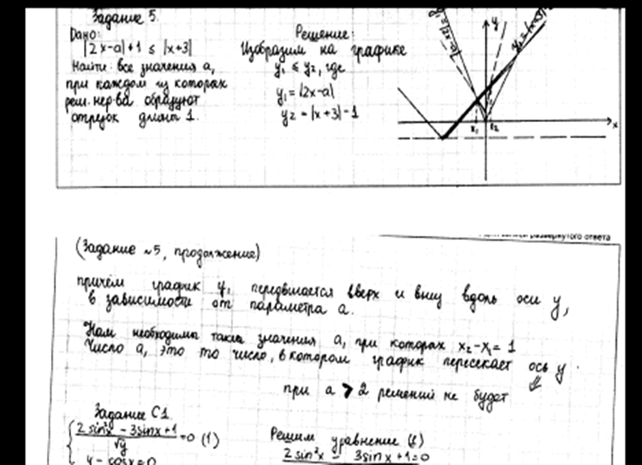 Задание 5.
Дано:
|2x-a|+1 ≤ |x+3|
Найти: все значения a,
при каждом из которых
реш. нер-ва образуют
отрезок длины 1.
Решение:
Изобразим на графике
y₁ ≤ y₂, где
y₁ = |2x-a|
y₂ = |x+3|-1
y
x₁ x₂ x
развернутого ответа
(Задание №5, продолжение)
причём график y₁ передвигается вверх и вниз вдоль оси y,
в зависимости от параметра a.
Нам необходимы такие значения a, при которых x₂-x₁=1
Число a, это то число, в котором график пересекает ось y.
при a > 2 решений не будет
Задание C1
2sin²x - 3sinx+1
√y
=0 (1)
y - cosx=0
Решим уравнение (1)
2sin²x 3sinx+1=0